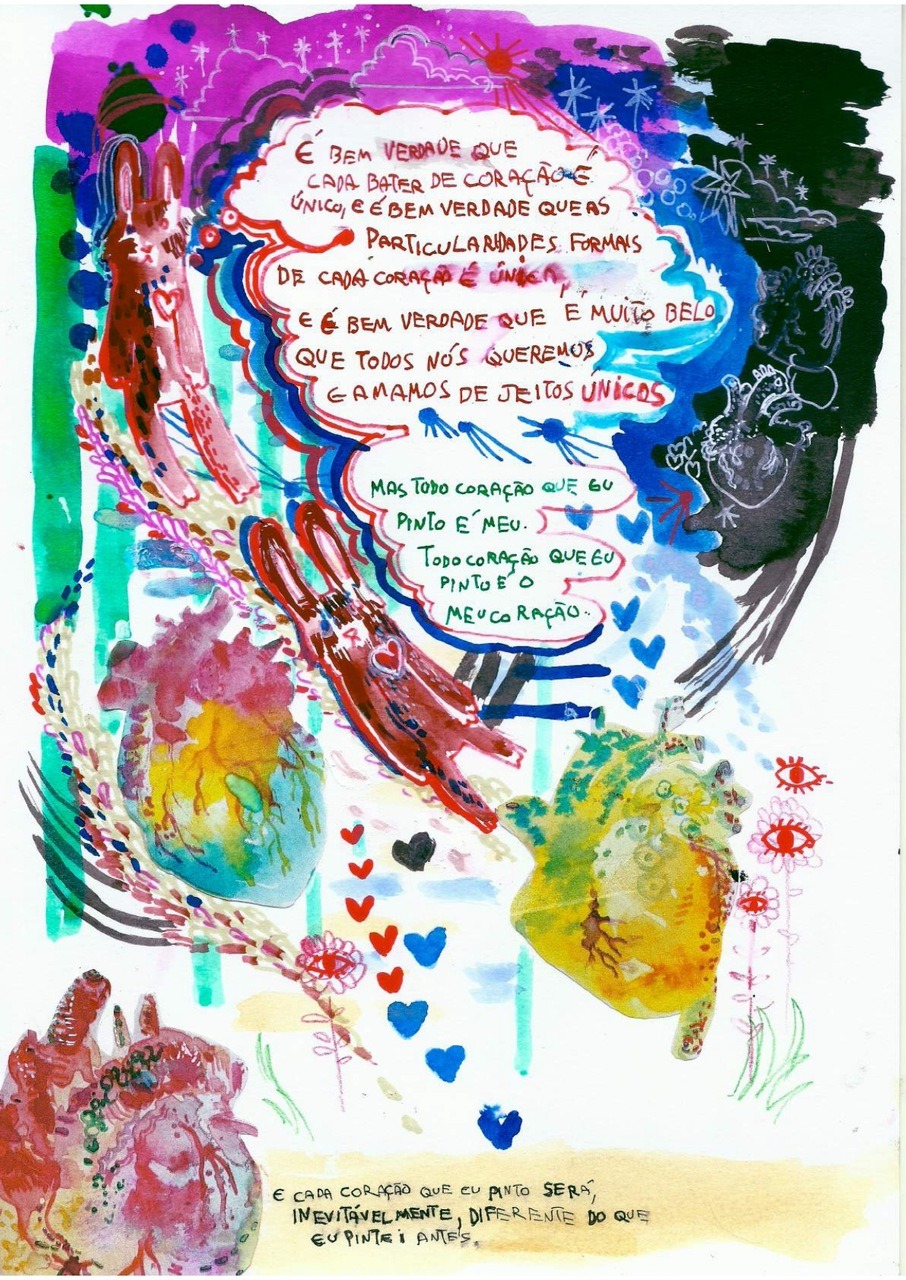 É BEM VERDADE QUE
CADA BATER DE CORAÇÃO É
ÚNICO, E É BEM VERDADE QUE AS
PARTICULARIDADES FORMAIS
DE CADA CORAÇÃO É ÚNICA,
E É BEM VERDADE QUE É MUITO BELO
QUE TODOS NÓS QUEREMOS
E AMAMOS DE JEITOS ÚNICOS
MAS TODO CORAÇÃO QUE EU
PINTO É MEU.
TODO CORAÇÃO QUE EU
PINTO É O
MEU CORAÇÃO.
E CADA CORAÇÃO QUE EU PINTO SERÁ,
INEVITÁVELMENTE, DIFERENTE DO QUE
EU PINTEI ANTES.